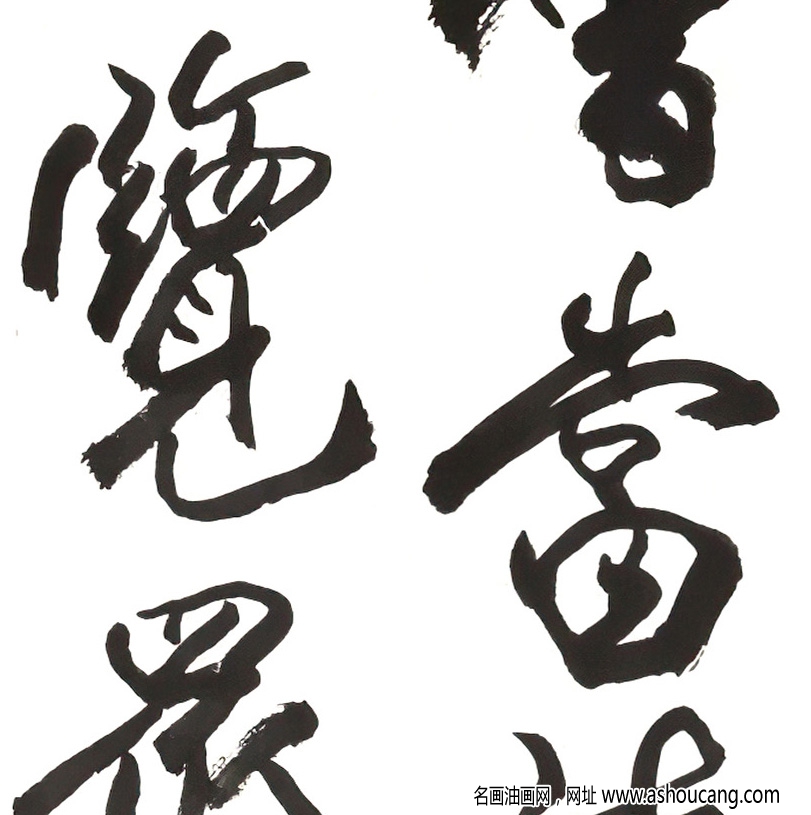 當
覽眾
名画油画网，网址 www.ashoucang.com